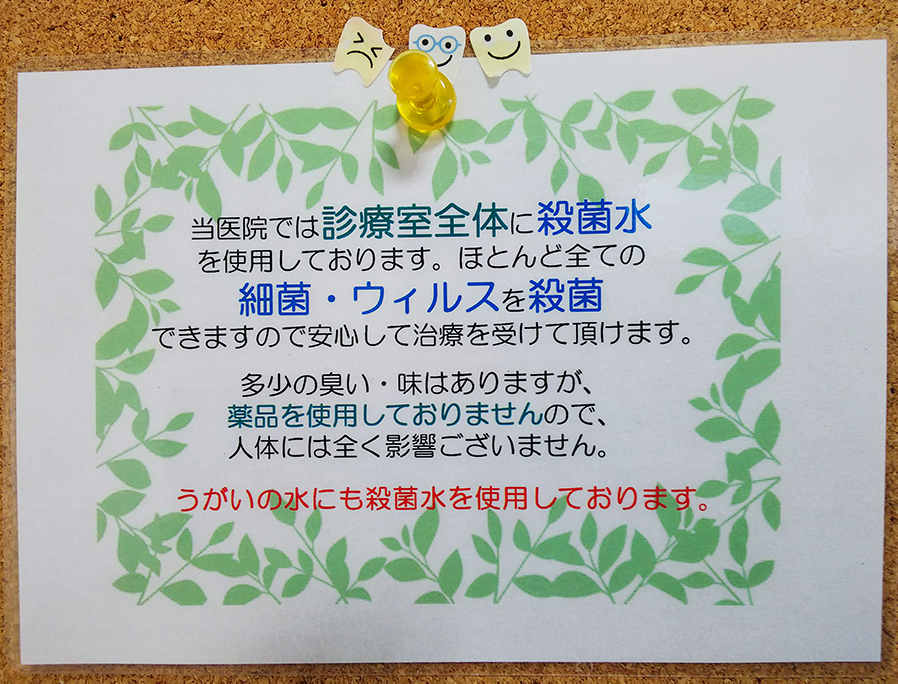 当医院では診療室全体に殺菌水
を使用しております。ほとんど全ての
細菌・ウィルスを殺菌
できますので安心して治療を受けて頂けます。
多少の臭い・味はありますが、
薬品を使用しておりませんので、
人体には全く影響ございません。
うがいの水にも殺菌水を使用しております。